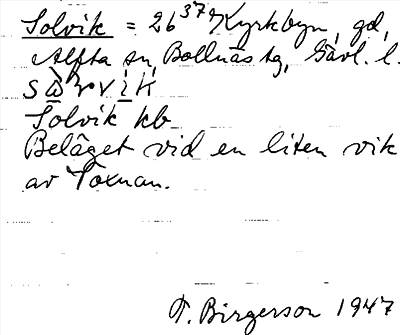 Solvik = 26³⁷ Kyrkbyn, gd,
Alfta sn, Bollnäs tg, Gävl. l.
Solvik kb
Beläget vid en liten vik
av Voxnan.
T. Birgerson 1947